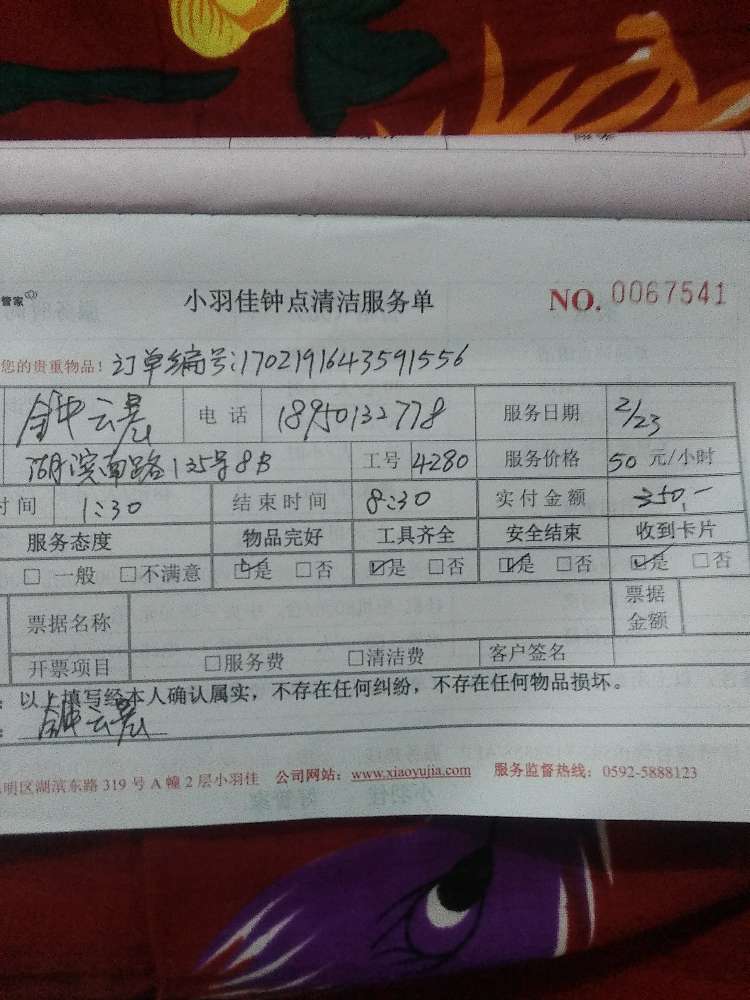 管家 小羽佳钟点清洁服务单 NO. 0067541
您的贵重物品！订单编号:1702191643591556
钟云昙 电话 18950132778 服务日期 2/23
湖滨南路135号8B 工号 4280 服务价格 50 元/小时
时间 1:30 结束时间 8:30 实付金额 350.-
服务态度 物品完好 工具齐全 安全结束 收到卡片
□ 一般 □不满意 ☑是 □否 ☑是 □否 ☑是 □否 ☑是 □否
票据名称 票据金额
开票项目 □服务费 □清洁费 客户签名
：以上填写经本人确认属实，不存在任何纠纷，不存在任何物品损坏。
：钟云昙
明区湖滨东路 319 号 A 幢 2 层小羽佳 公司网站：www.xiaoyujia.com 服务监督热线：0592-5888123